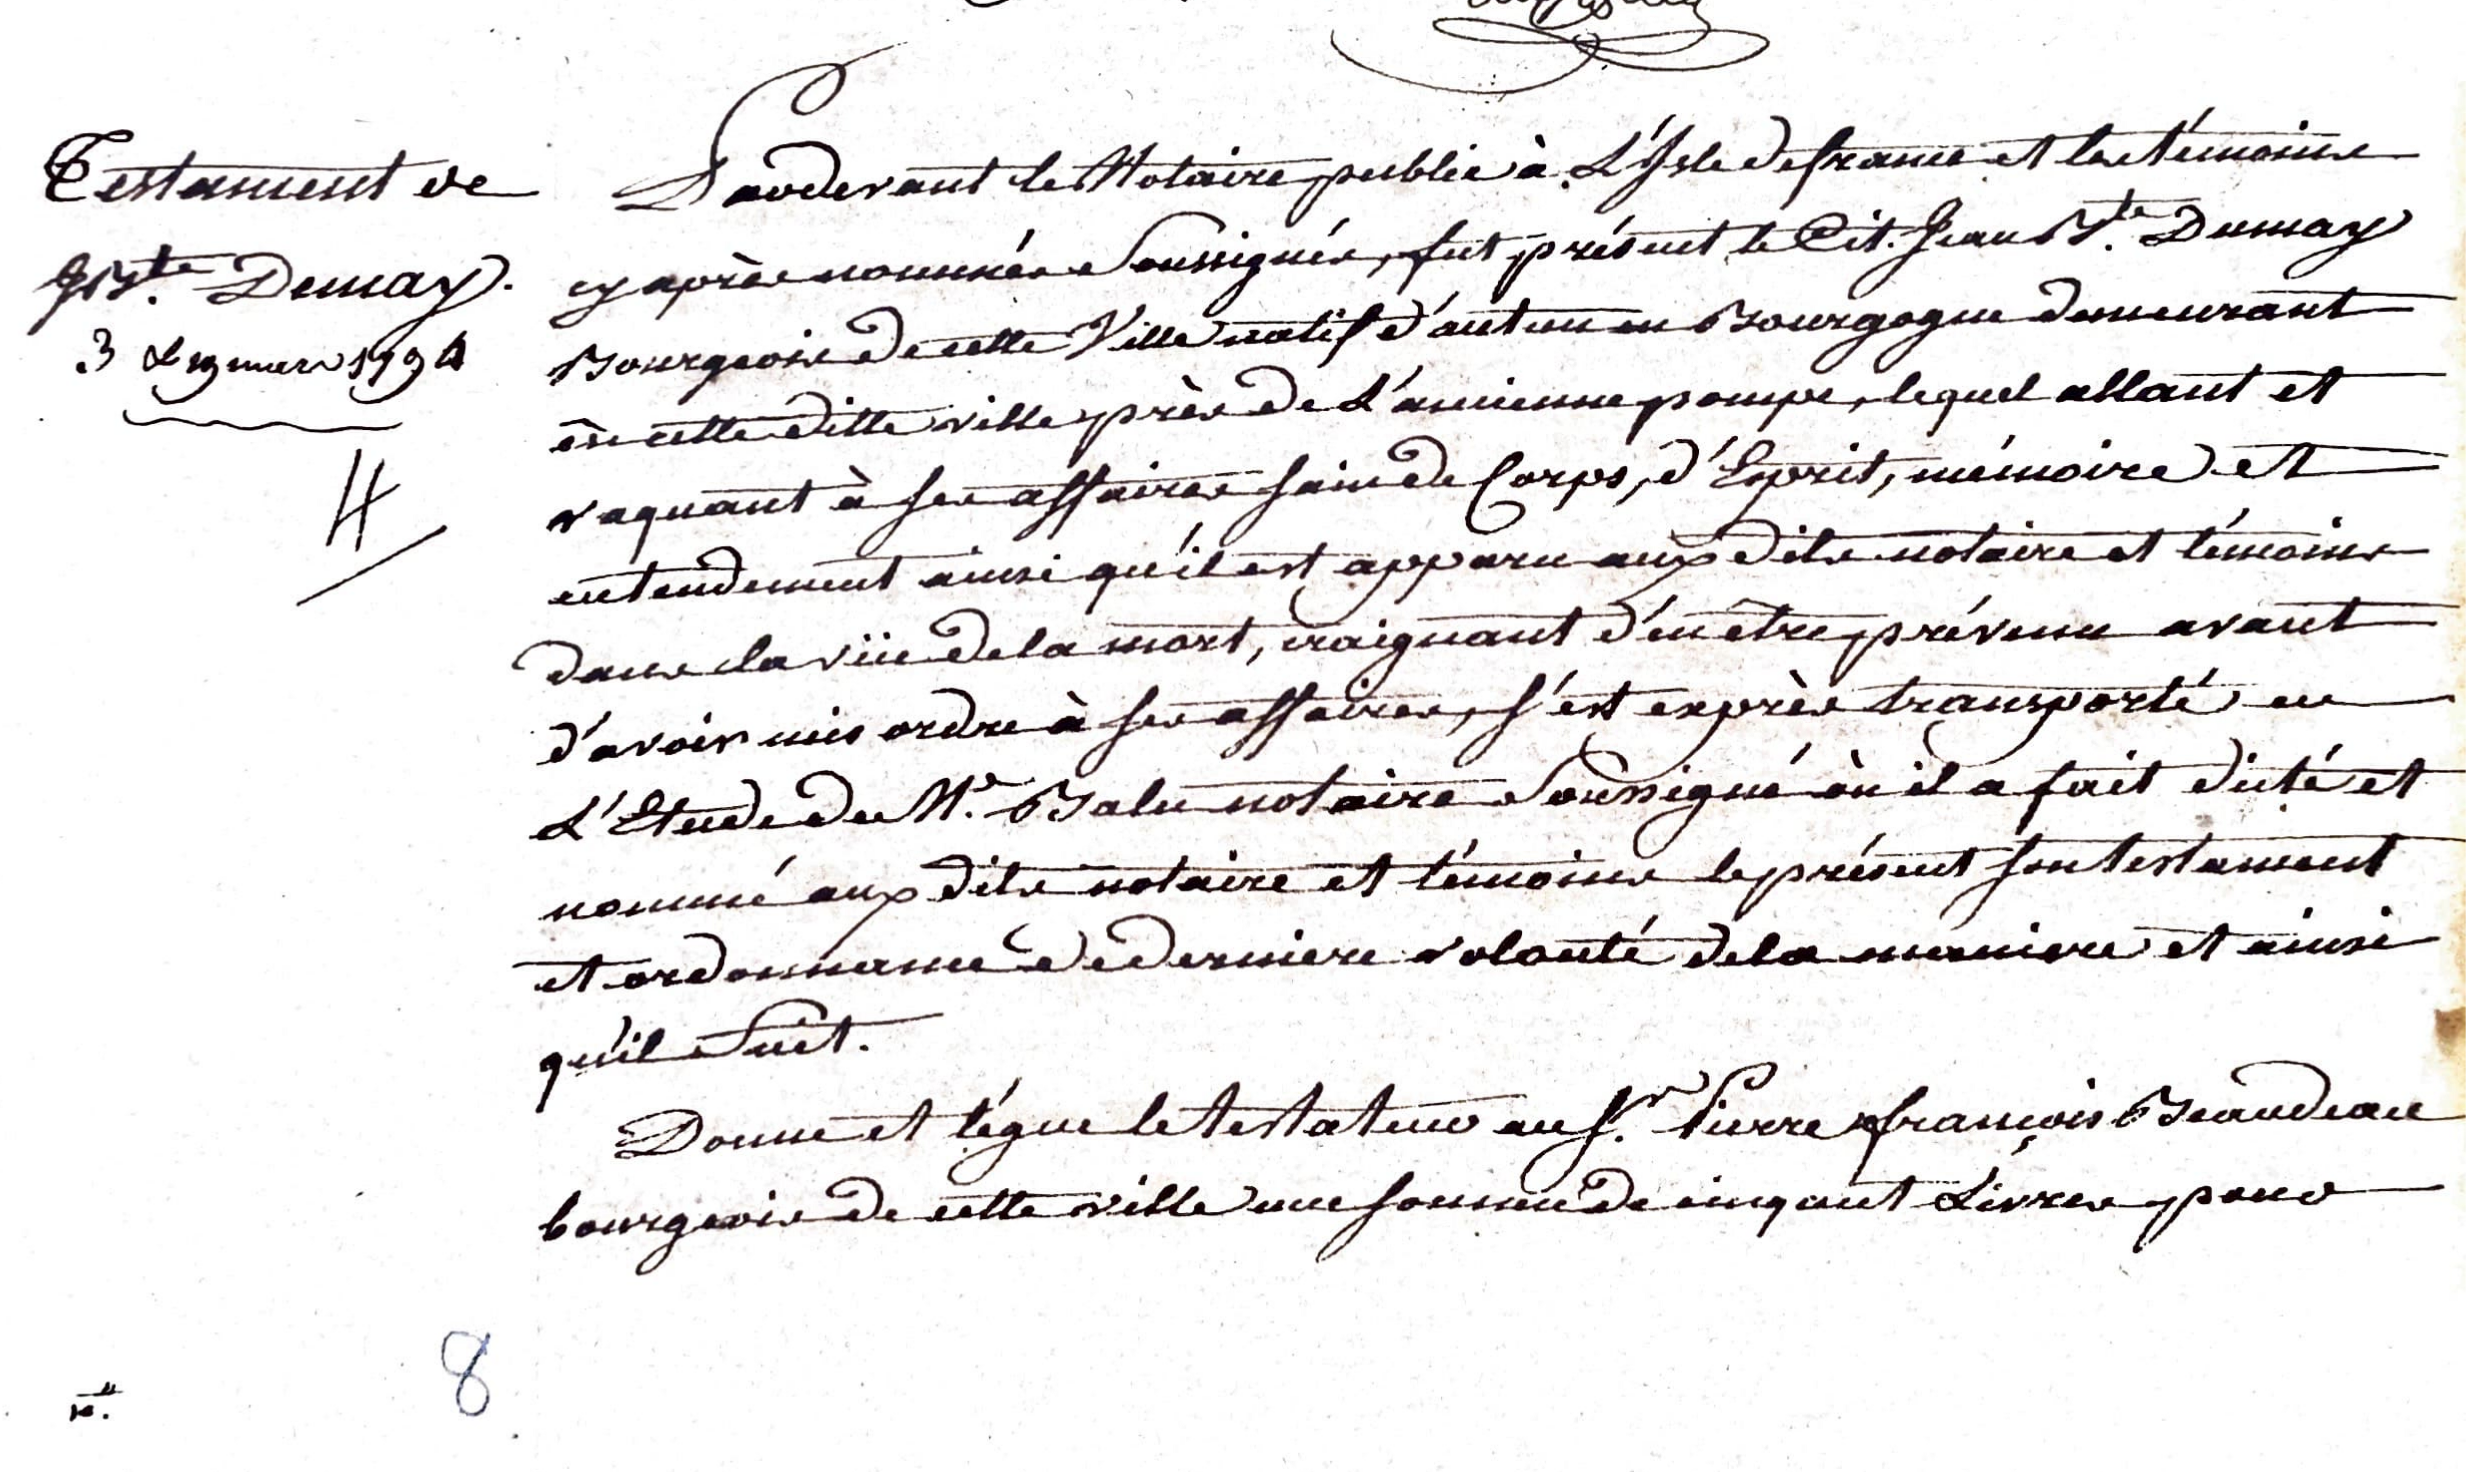 Testament de
J Bte. Dumay.
3 Le 19 mars 1794
4
Pardevant le Notaire public à L'Isle defrance et les témoins
cy après nommés Soussignés, fut présent le Cit. Jean Bte. Dumay
Bourgeois de cette Ville natif d'autun en Bourgogne demeurant
en cette ditte ville près de L'ancienne pompe, lequel allant et
vaquant à ses affaires sain de Corps, d'Esprit, mémoire et
entendement ainsi qu'il est apparu aux dits notaire et témoins
dans la vüe de la mort, craignant d'en être prévenu avant
d'avoir mis ordre à ses affaires, s'est exprès transporté en
L'Etude du Me. Balu notaire Soussigné où il a fait dicté et
nommé aux dits notaire et témoins le présent son testament
et ordonnance de derniere volonté de la maniere et ainsi
qu'il Suit.
Donne et légue le testateur au Sr. Pierre françois Beaudeau
bourgeois de cette ville une somme de cinq cent Livres pour
8